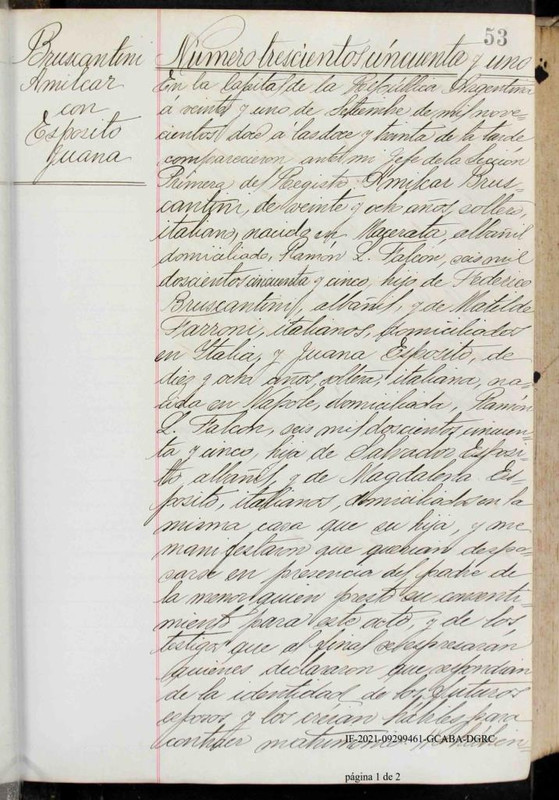 53
Bruscantini
Amilcar
con
Esposito
Juana
Número trescientos cincuenta y uno
En la Capital de la República Argentina
á veinte y uno de Setiembre de mil nove-
cientos doce a las doce y treinta de la tarde
comparecieron ante mi Jefe de la Sección
Primera del Registro, Amilcar Brus-
cantini, de veinte y ocho años, soltero,
italiano, nacido en Macerata, albañil
domiciliado, Ramón L. Falcon, seis mil
doscientos cincuenta y cinco, hijo de Federico
Bruscantini, albañil, y de Matilde
Farroni, italianos, domiciliados
en Italia, y Juana Esposito, de
diez y ocho años, soltera, italiana, na-
cida en Napole, domiciliada, Ramón
L. Falcon, seis mil doscientos cincuen-
ta y cinco, hija de Salvador Esposi-
to, albañil, y de Magdalena Es-
posito, italianos, domiciliados en la
misma casa que su hija, y me
manifestaron que querian despo-
sarse en presencia del padre de
la menor quien prestó su consenti-
miento para este acto, y de los
testigos que al final se espresarán
quienes declararon que respondian
de la identidad de los futuros
esposos y los creían hábiles para
contraer matrimonio
IF-2021-09299461-GCABA-DGRC
página 1 de 2